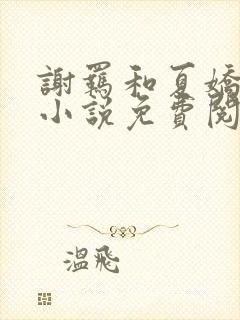 謝羈和夏嬌
小說免費閱
溫飛